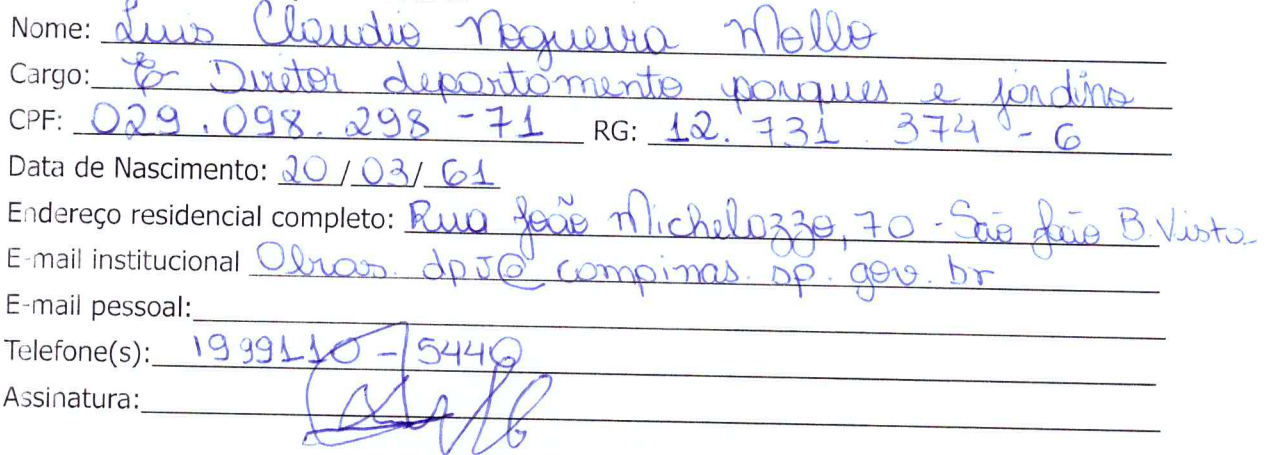 Nome: Luis Claudio Nogueira Mollo
Cargo: Diretor departamento parques e jardins
CPF: 029.098.298-71 RG: 12.731.374-6
Data de Nascimento: 20/03/61
Endereço residencial completo: Rua João Michelazzo, 70 - São João B. Vista
E-mail institucional Obras.dpj@campinas.sp.gov.br
E-mail pessoal:
Telefone(s): 1999110-5446
Assinatura: